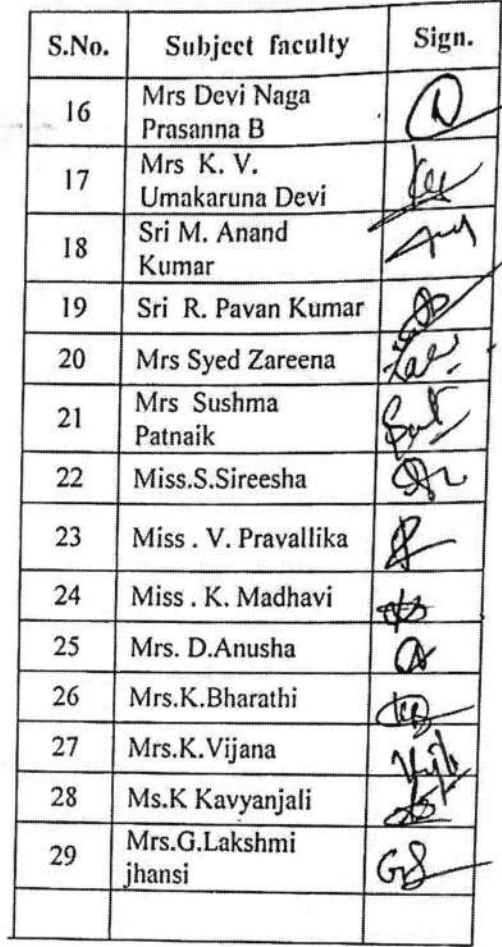 S.No. Subject faculty Sign.
16 Mrs Devi Naga
Prasanna B
17 Mrs K. V.
Umakaruna Devi
18 Sri M. Anand
Kumar
19 Sri R. Pavan Kumar
20 Mrs Syed Zareena
21 Mrs Sushma
Patnaik
22 Miss.S.Sireesha
23 Miss . V. Pravallika
24 Miss . K. Madhavi
25 Mrs. D.Anusha
26 Mrs.K.Bharathi
27 Mrs.K.Vijana
28 Ms.K Kavyanjali
29 Mrs.G.Lakshmi
jhansi